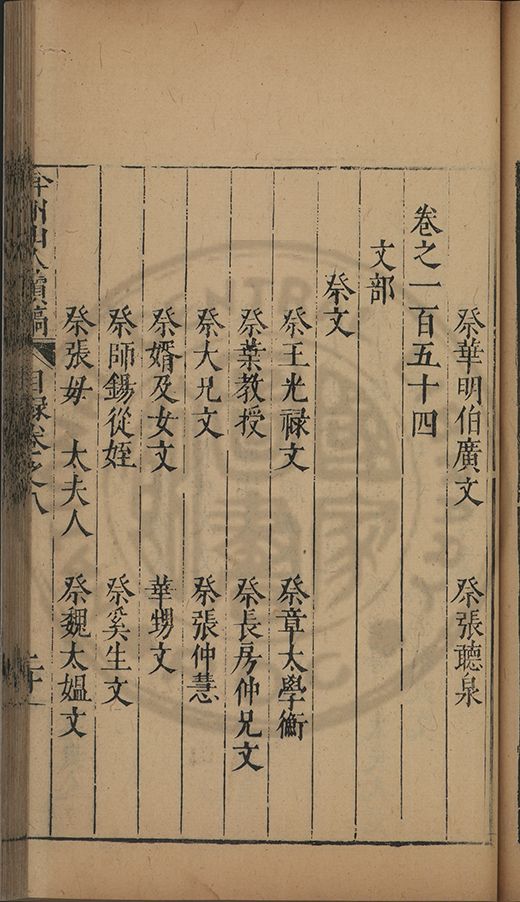 祭華明伯廣文　祭張聽泉
卷之一百五十四
文部
祭文
祭王光禄文　祭章太學衡
祭葉教授　祭長房仲兄文
祭大兄文　祭張仲慧
祭婿及女文　華甥文
祭師錫從姪　祭奚生文
祭張母　太夫人　祭魏太媼文
弇州山人續稿　目録卷之八